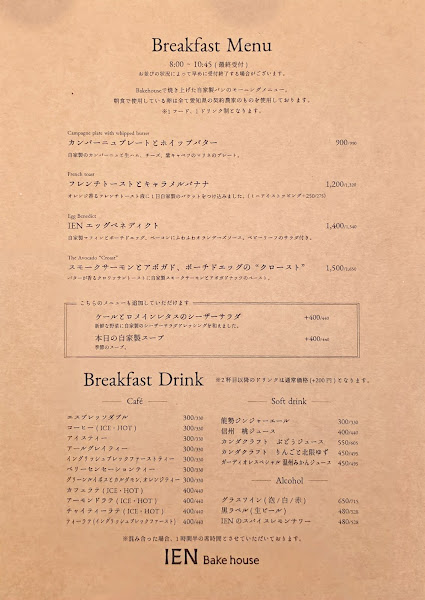 Breakfast Menu
8:00 ~ 10:45 ( 最終受付 )
お並びの状況によって早めに受付終了する場合がございます。
Bakehouseで焼き上げた自家製パンのモーニングメニュー。
朝食で使用している卵は全て愛知県の契約農家のものを使用しております。
※1フード、1ドリンク制となります。
Campagne plate with whipped butter
カンパーニュプレートとホイップバター 900/990
自家製のカンパーニュと生ハム、チーズ、葉キャベツのマリネのプレート。
French toast
フレンチトーストとキャラメルバナナ 1,200/1,320
オレンジ香るフレンチトースト液に1日自家製のバケットをつけ込みました。
Egg Benedict
IEN エッグベネディクト 1,400/1,540
自家製マフィンとポーチドエッグ、ベーコンにふわふわオランデーズソース。ベビーリーフのサラダ付き。
The Avocado "Croast"
スモークサーモンとアボガド、ポーチドエッグの “クロースト” 1,500/1,650
バターが香るクロワッサントーストに自家製スモークサーモンとアボガドディップのペースト。
こちらのメニューも追加していただけます
ケールとロメインレタスのシーザーサラダ +400/440
新鮮な野菜に自家製のシーザーサラダドレッシングを和えました。
本日の自家製スープ +400/440
季節のスープ。
Breakfast Drink ※2杯目以降のドリンクは通常価格(+200円)となります。
Café
エスプレッソダブル 300/330
コーヒー ( ICE・HOT ) 300/330
アイスティー 300/330
アールグレイティー 300/330
イングリッシュブレックファーストティー 300/330
ベリーセンセーションティー 300/330
グリーンルイボスとカルダモン,オレンジティー 300/330
カフェラテ ( ICE・HOT ) 400/440
アーモンドラテ ( ICE・HOT ) 400/440
チャイティーラテ ( ICE・HOT ) 400/440
ティーラテ ( イングリッシュブレックファースト ) 400/440
Soft drink
能勢ジンジャーエール 300/330
信州 桃ジュース 400/440
カンダクラフト ぶどうジュース 550/605
カンダクラフト りんごと北限ゆず 450/495
ガーディオレスペシャル 温州みかんジュース 450/495
Alcohol
グラスワイン ( 泡 / 白 / 赤 ) 650/715
黒ラベル ( 生ビール ) 480/528
IENのスパイスレモンサワー 480/528
※混み合った場合、1時間半の席時間とさせていただいております。
IEN Bake house